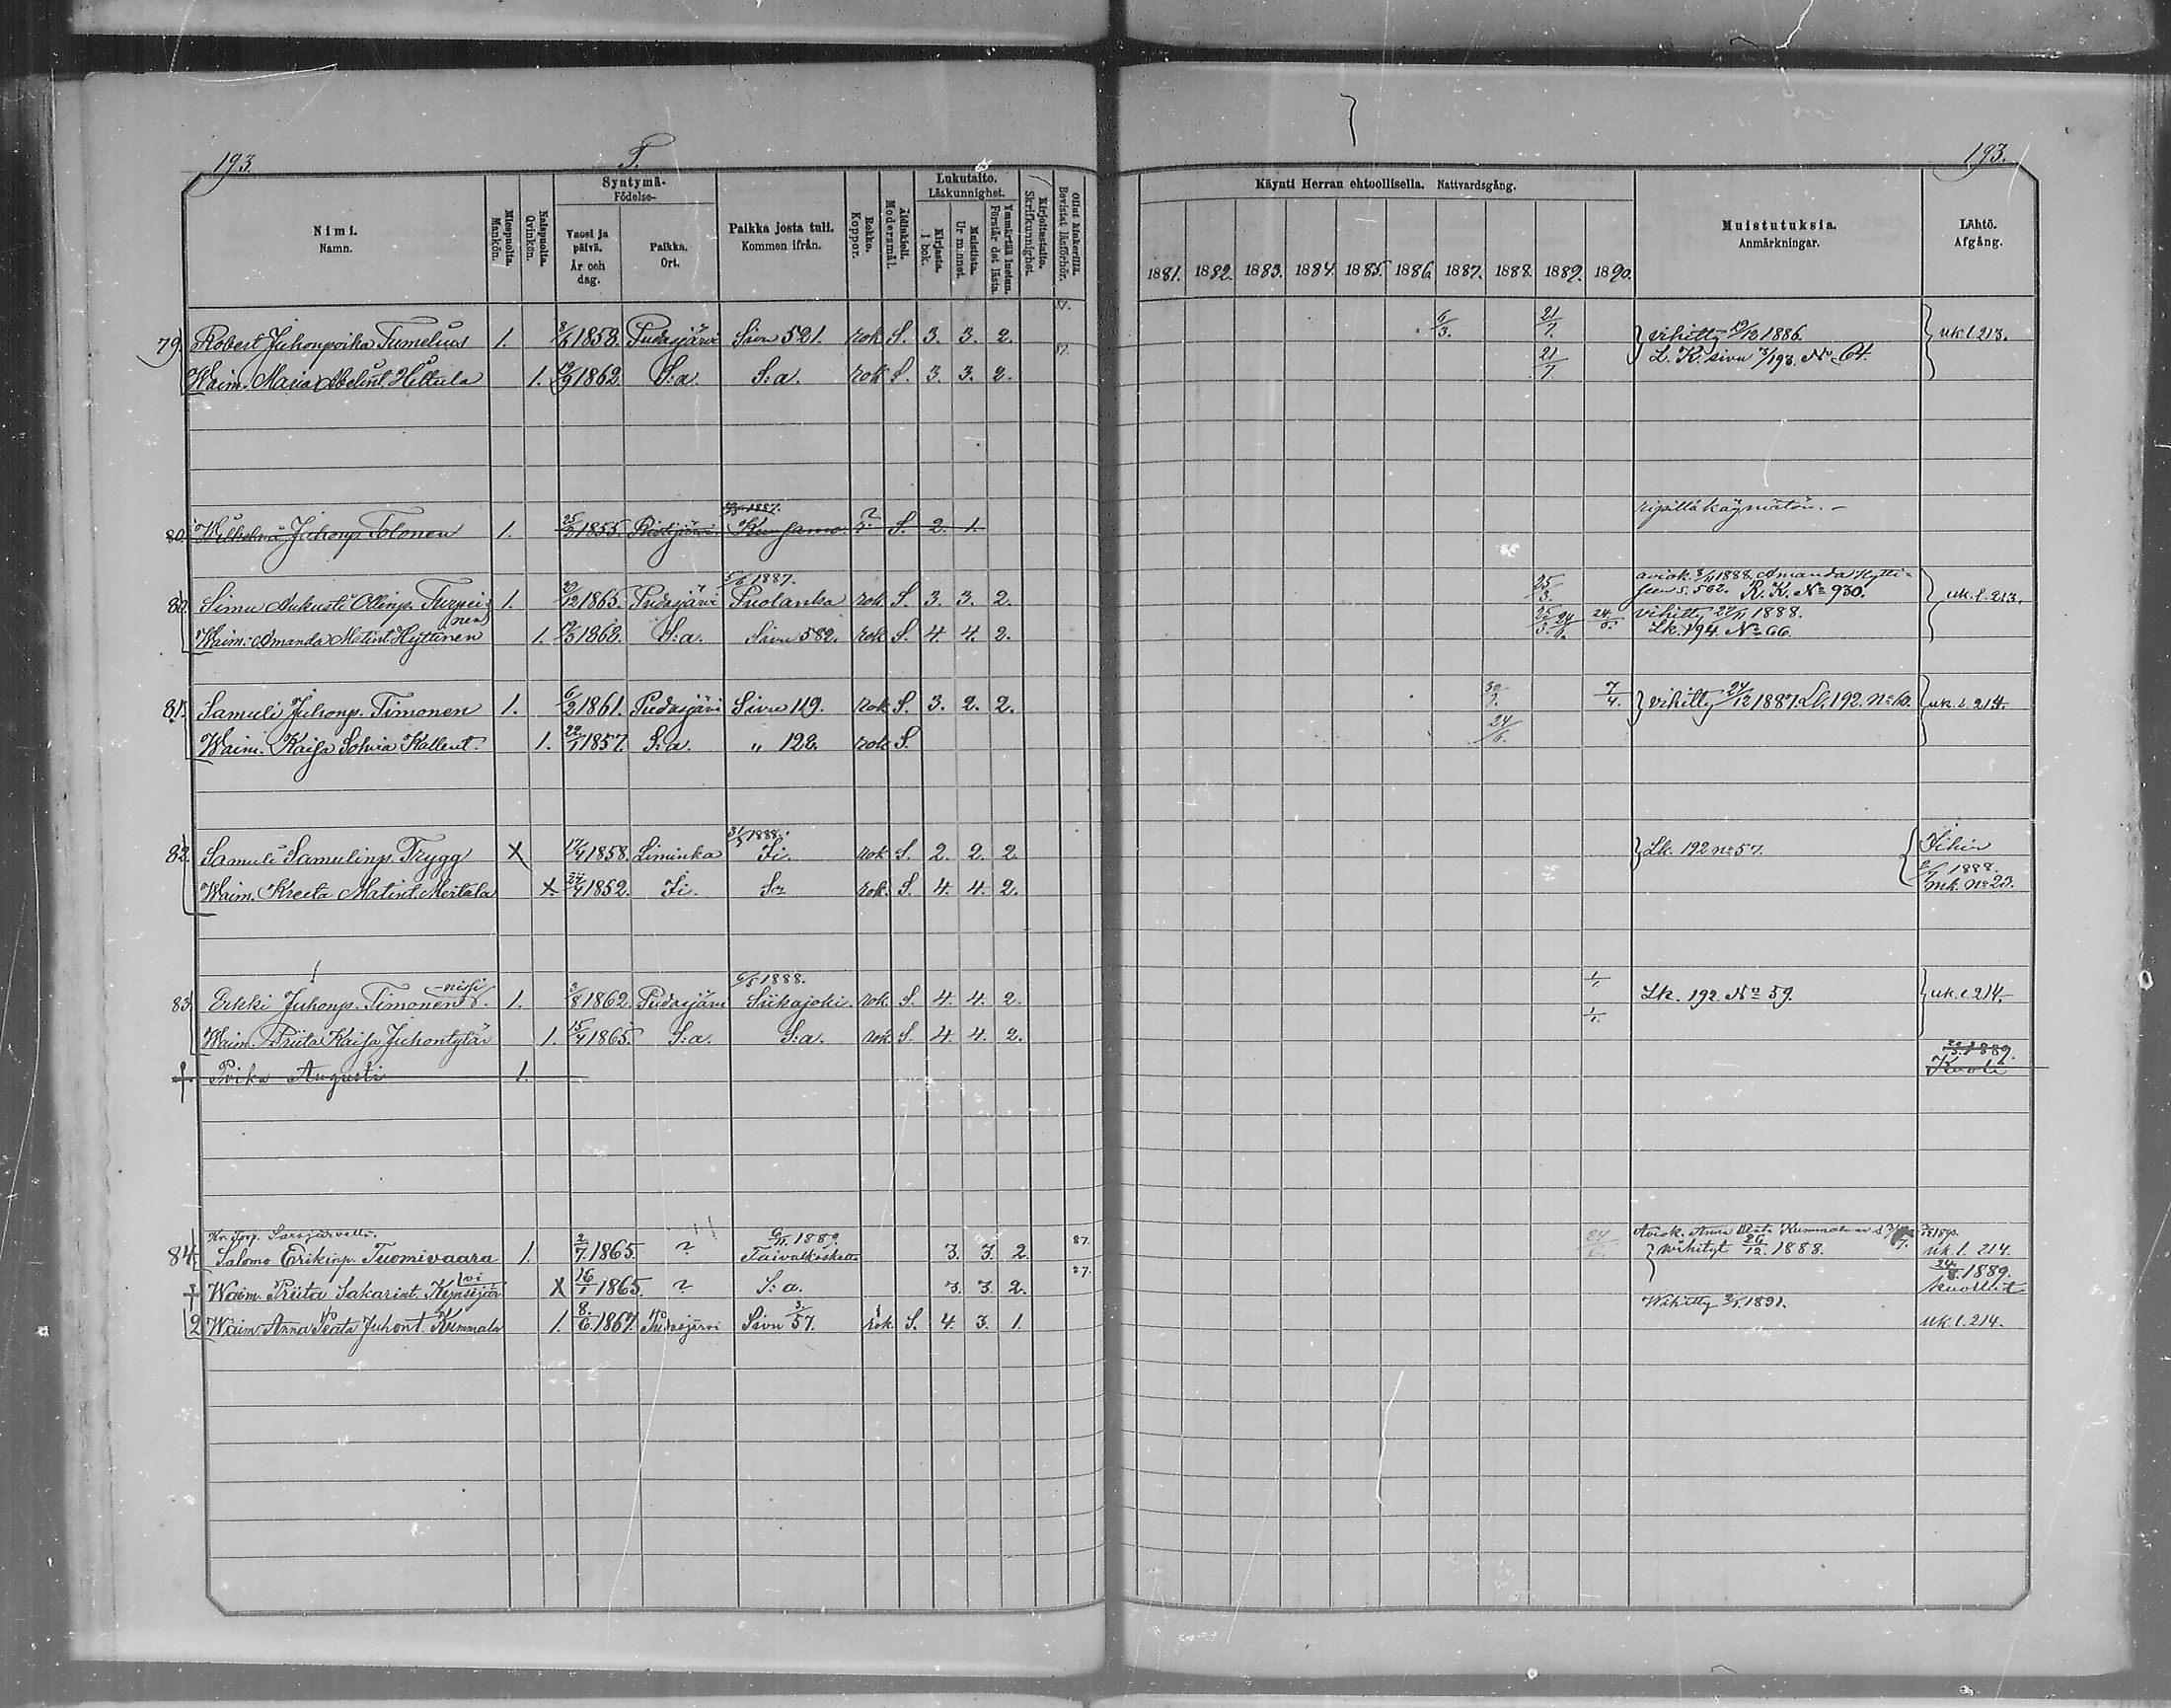 193.
T.
193.
Nimi.
Namn.
Miespuolia.
Mankön.
Naispuolia.
Qvinkön.
Syntymä-
Födelse-
Vuosi ja päivä.
År och dag.
Paikka.
Ort.
Paikka josta tuli.
Kommen ifrån.
Rokko.
Koppor.
Äidinkieli.
Modersmål.
Lukutaito.
Läskunnighet.
Kirjasta.
I bok.
Muistista.
Ur minnet.
Ymmärtää luetun.
Förstår det lästa.
Kirjoitustaito.
Skrifkunnighet.
Ollut kinkerillä.
Bevistat läsförhör.
Käynti Herran ehtoollisella. Nattvardsgång.
1881. 1882. 1883. 1884. 1885. 1886. 1887. 1888. 1889. 1890.
Muistutuksia.
Anmärkningar.
Lähtö.
Afgång.
79. Robert Juhonpoika Tumelius 1. 1858. Pudasjärvi Sivu 521. rok S. 3. 3. 2. 6/3. 21/7. vihitty 1886. uk. l. 213.
Waim. Maria Abelint. Heltula 1. 1862 S:a. S:a. rok S. 3. 3. 2. 21/7. L. K. sivu 193. No 64.
80. Wilhelmi Juhonp. Tolonen 1. 25/2 1855. Kuusamo. 1887. ? S. 2. 1. ripillä käymätön.
5/6 1887.
80. Simu Aukusti Ollinp. Turpeinen 1. 12 1865. Pudasjärvi Puolanka rok S. 3. 3. 2. 25/3. aviok. 1888 Amanda Hyttisen s. 562. R. K. No 930. uk. l. 213.
Waim. Amanda Matint. Hyttinen 1. 1862. S:a. Sivu 582. rok S. 4. 4. 2. 25/3. 24/6. 24/6. vihitty 1888.
Lk. 194. No 66.
81. Samuli Juhonp. Timonen 1. 6/2 1861. Pudasjärvi Sivu 119. rok S. 3. 2. 2. 7/4. vihitty 24/12 1887. Lk. 192. No 60. uk. l. 214.
Waim. Kaisa Sohvia Kallent. 1. 22/1 1857. S:a. „ 128. rok S. 24/6.
31/5 1888.
82. Samuli Samulinp. Trygg X 1858. Liminka Ii rok S. 2. 2. 2. Lk. 192 no 57. Iihin
Waim. Kreeta Matint. Mertala X 1852. Ii. rok. S. 4. 4. 2. 1888.
mk. no 23.
6/5 1888.
83. Erkki Juhonp. Timonen 1. 3/8 1862. Pudasjärvi Siikajoki. rok. S. 4. 4. 2. 1/1. Lk. 192. No 59. uk. l. 214.
Waim. Priita Kaisa Juhontytär 1. 15/4 1865. S:a. S:a. rok S. 4. 4. 2. 1/1.
† Poika Augusti 1. 1889.
Kuoli
84. Salomo Erikinp. Tuomivaara 1. 2/7. 1865. ? 1889. Taivalkoskelta 3. 3. 2. 87. 24/6. Aviok. Anna
vihityt 26/12. 1888. uk. l. 214.
† Waim. Priita Sakarint. X 16/1 1865. ? S:a. 3. 3. 2. 87. 24/8. 1889.
kuollut
2 Waim. Anna Peata Juhont. Kummala 1. 8/6. 1867. Pudasjärvi Sivu 57. rok. S. 4. 3. 1. Wihitty 1891. uk. l. 214.